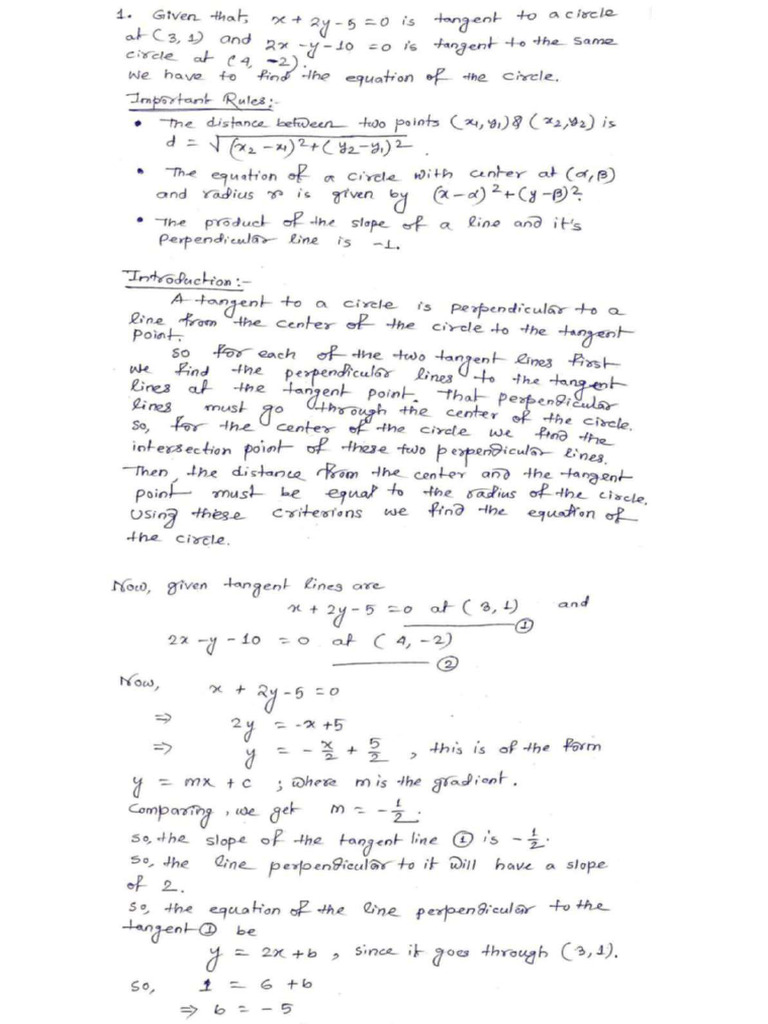 1. Given that, x + 2y - 5 = 0 is tangent to a circle
at (3, 1) and 2x - y - 10 = 0 is tangent to the same
circle at (4, -2).
We have to find the equation of the circle.
Important Rules:-
• The distance between two points (x1, y1) & (x2, y2) is
d = √(x2 - x1)2 + (y2 - y1)2 .
• The equation of a circle with center at (α, β)
and radius r is given by (x - α)2 + (y - β)2.
• The product of the slope of a line and it's
perpendicular line is -1.
Introduction:-
A tangent to a circle is perpendicular to a
line from the center of the circle to the tangent
point.
So for each of the two tangent lines first
we find the perpendicular lines to the tangent
lines at the tangent point. That perpendicular
lines must go through the center of the circle.
So, for the center of the circle we find the
intersection point of these two perpendicular lines.
Then, the distance from the center and the tangent
point must be equal to the radius of the circle.
Using these criterions we find the equation of
the circle.
Now, given tangent lines are
x + 2y - 5 = 0 at (3, 1) ① and
2x - y - 10 = 0 at (4, -2) ②
Now, x + 2y - 5 = 0
⇒ 2y = -x + 5
⇒ y = - x/2 + 5/2 , this is of the form
y = mx + c ; where m is the gradient.
Comparing, we get m = - 1/2 .
So, the slope of the tangent line ① is - 1/2 .
So, the line perpendicular to it will have a slope
of 2.
So, the equation of the line perpendicular to the
tangent ① be
y = 2x + b , since it goes through (3, 1).
So, 1 = 6 + b
⇒ b = - 5